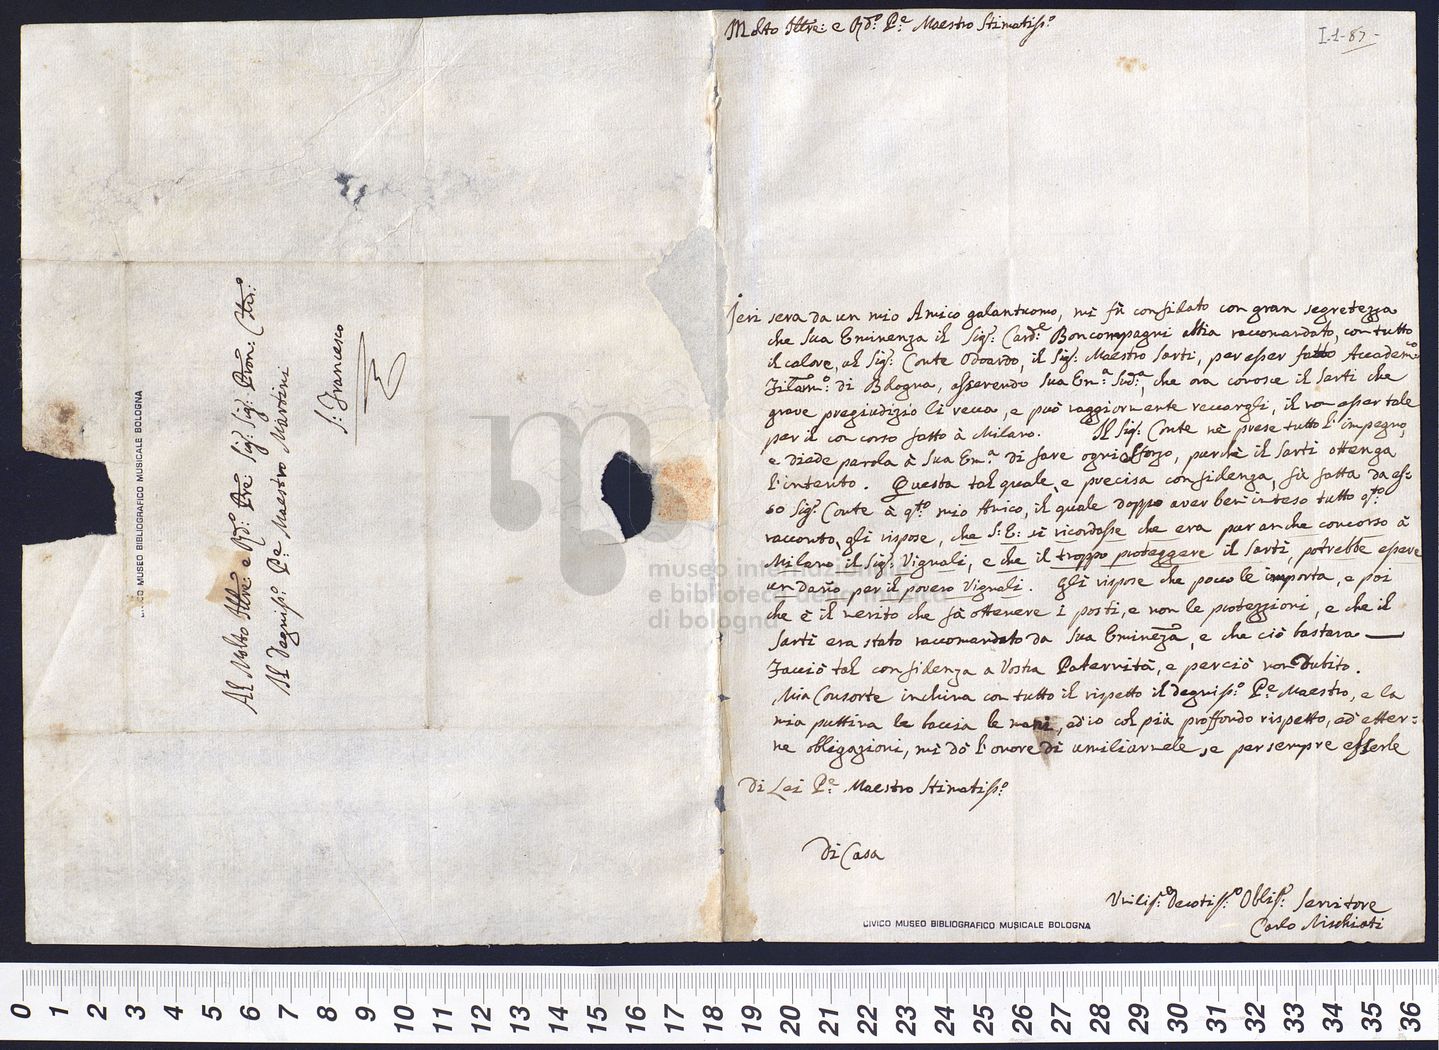 Molto Illre: e Rdo: Pe: Maestro Stimatisso:
I-1-87-
Jeri sera da un mio Amico galantuomo, mi fù confidato con gran segretezza
che Sua Eminenza il Sigr: Carde: Boncompagni abbia raccomandato, con tutto
il calore, al Sigr: Conte Odoardo, il Sigr: Maestro Sarti, per esser fatto Accademco
Filarmo: di Bologna, asserendo Sua Ema: Suda:, che ora conosce il Sarti che
grave pregiudizio li recca, e può maggiormente reccargli, il non esser tale
per il concorso fatto à Milano. Il Sigr: Conte nè prese tutto l'impegno,
e diede parola à Sua Ema: di fare ogni sforzo, purchè il Sarti ottenga
l'intento. Questa tal quale, e precisa confidenza, fù fatta da es-
so Sigr: Conte à qto: mio Amico, il quale doppo aver ben inteso tutto qto:
racconto, gli rispose, che S: E: si ricordasse che era pur anche concorso à
Milano il Sigr: Vignali, e che il troppo proteggere il Sarti, potrebbe essere
un dano per il povero Vignali. Gli rispose che pocco le importa, e poi
che è il merito che fà ottenere i posti, e non le protezzioni, e che il
Sarti era stato raccomandato da Sua Emineza, e che ciò bastava —
Facciò tal confidenza a Vostra Paternità, e perciò non dubito.
Mia Consorte inchina con tutto il rispetto il degniso: Pe: Maestro, e la
mia puttina le baccia le mani, ed io col più proffondo rispetto, ed etter=
ne obligazioni, mi dò l'onore di umiliarmele, e per sempre esserle
Di Lei Pe: Maestro Stimatisso:
Di Casa
Umilis: Devotiso: Obblis: Servitore
Carlo Mischiati
CIVICO MUSEO BIBLIOGRAFICO MUSICALE BOLOGNA
Al Molto Illre: e Rdo: Pre: Sigr: Sigr: Pron: Colmo:
Il Degniso: Pe: Maestro Martini
S: Francesco
CIVICO MUSEO BIBLIOGRAFICO MUSICALE BOLOGNA
museo internazionale
e biblioteca della musica
di bologna
0 1 2 3 4 5 6 7 8 9 10 11 12 13 14 15 16 17 18 19 20 21 22 23 24 25 26 27 28 29 30 31 32 33 34 35 36